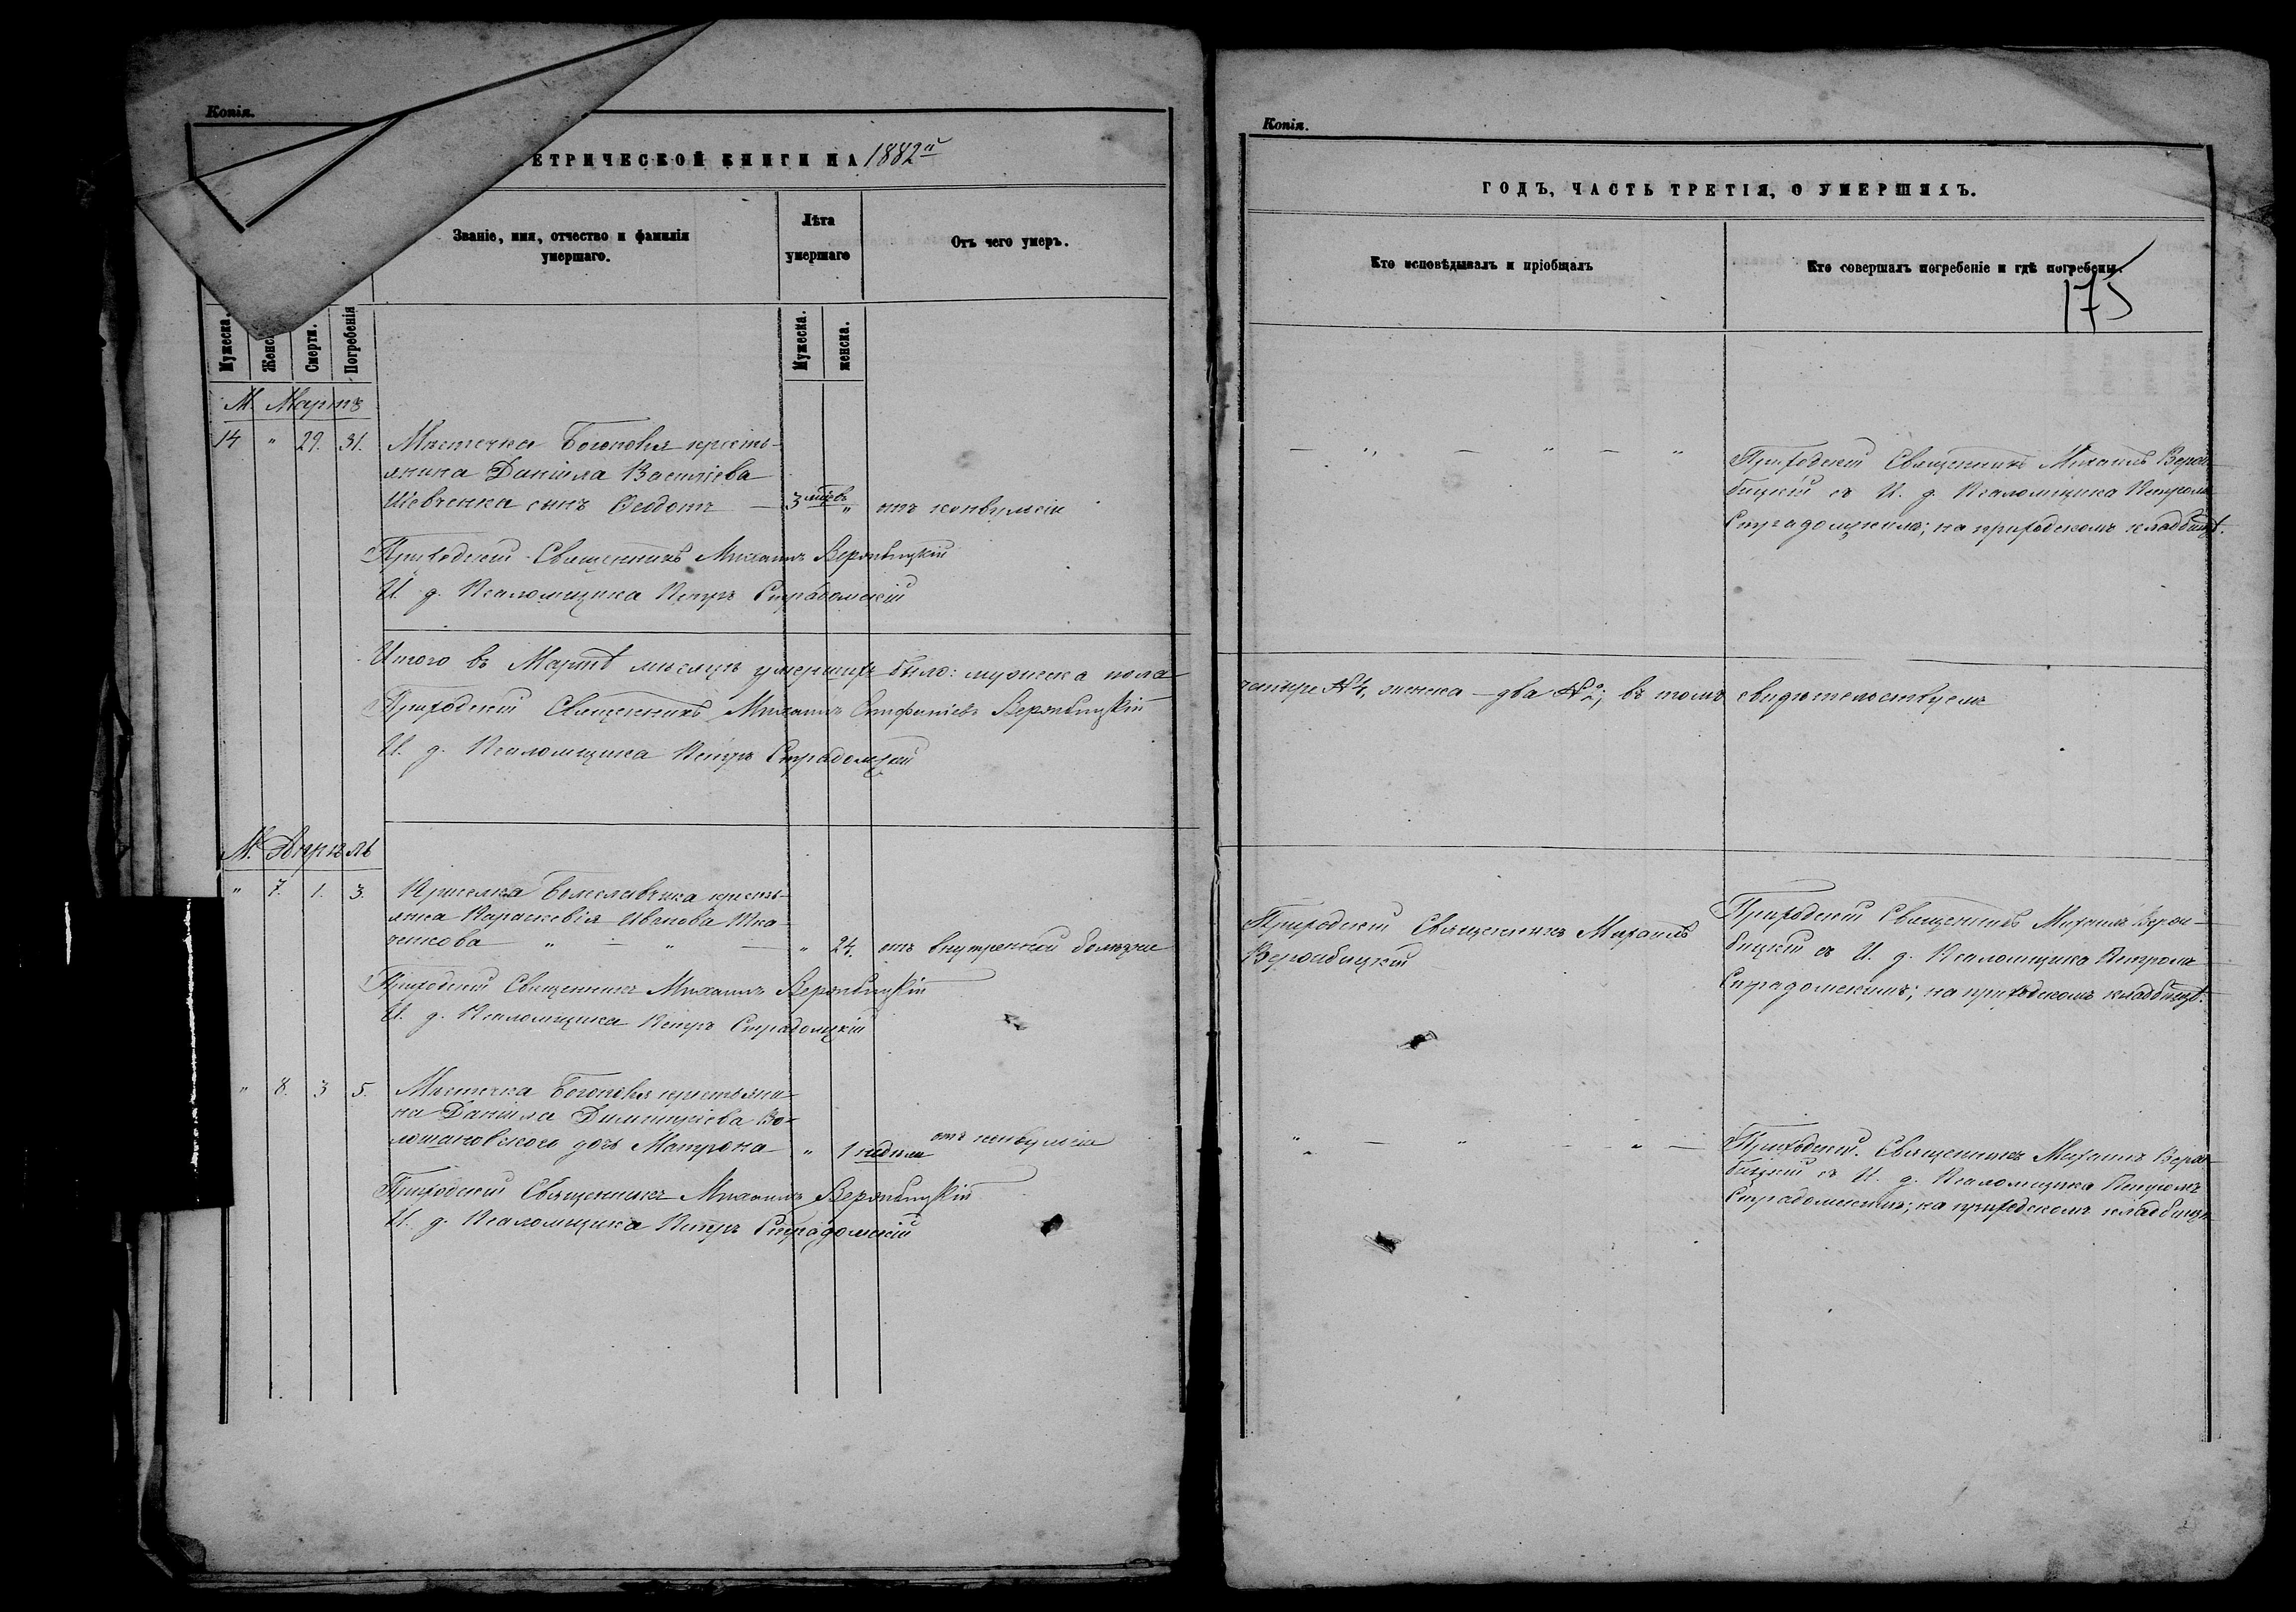 Копія.
ЕТРИЧЕСКОЙ КНИГИ НА 1882й
Званіе, имя, отчество и фамилія
умершаго.
Лѣта
умершаго
Отъ чего умеръ.
Мужеска.
Женс
Смерти.
Погребенія
Мужеска.
женска.
М. Мартъ
14 " 29. 31. Мѣстечка Богополя кресть-
янина Даніила Васильева
Шевченка сынъ Ѳеодотъ — 3 " отъ конвульсіи
Приходскій Священникъ Михаилъ Вержбицкій
И. д. Псаломщика Петръ Страдомскій
Итого въ Мартѣ мѣсяцѣ умершихъ было: мужеска пола
Приходскій Священникъ Михаилъ Стефаніевъ Вержбицкій
И. д. Псаломщика Петръ Страдомскій
М. Апрѣль
" 7. 1. 3. кресть-
янка Параскевія Иванова Тка-
ченкова " — " — " 24. отъ внутренней болѣзни
Приходскій Священникъ Михаилъ Вержбицкій
И. д. Псаломщика Петръ Страдомскій
" 8. 3 5. Мѣстечка Богополя крестьяни-
на Даніила Димитріева Во-
лошановского дочь Матрона " 1 недѣли отъ конвульсіи
Приходскій Священникъ Михаилъ Вержбицкій
И. д. Псаломщика Петръ Страдомскій
Копія.
ГОДЪ, ЧАСТЬ ТРЕТІЯ, О УМЕРШИХЪ.
Кто исповѣдывалъ и пріобщалъ
Кто совершалъ погребеніе и гдѣ погребены.
175
— " — " — " Приходскій Священникъ Михаилъ Верж-
бицкій съ И. д. Псаломщика Петромъ
Страдомскимъ; на приходскомъ кладбищѣ.
четыре №4, женска — два №2; въ томъ свидѣтельствуемъ
Приходскій Священникъ Михаилъ
Вержбицкій
Приходскій Священникъ Михаилъ Верж-
бицкій съ И. д. Псаломщика Петромъ
Страдомскимъ; на приходскомъ кладбищѣ.
" — " — " — Приходскій Священникъ Михаилъ Верж-
бицкій съ И. д. Псаломщика Петромъ
Страдомскимъ; на приходскомъ кладбищѣ